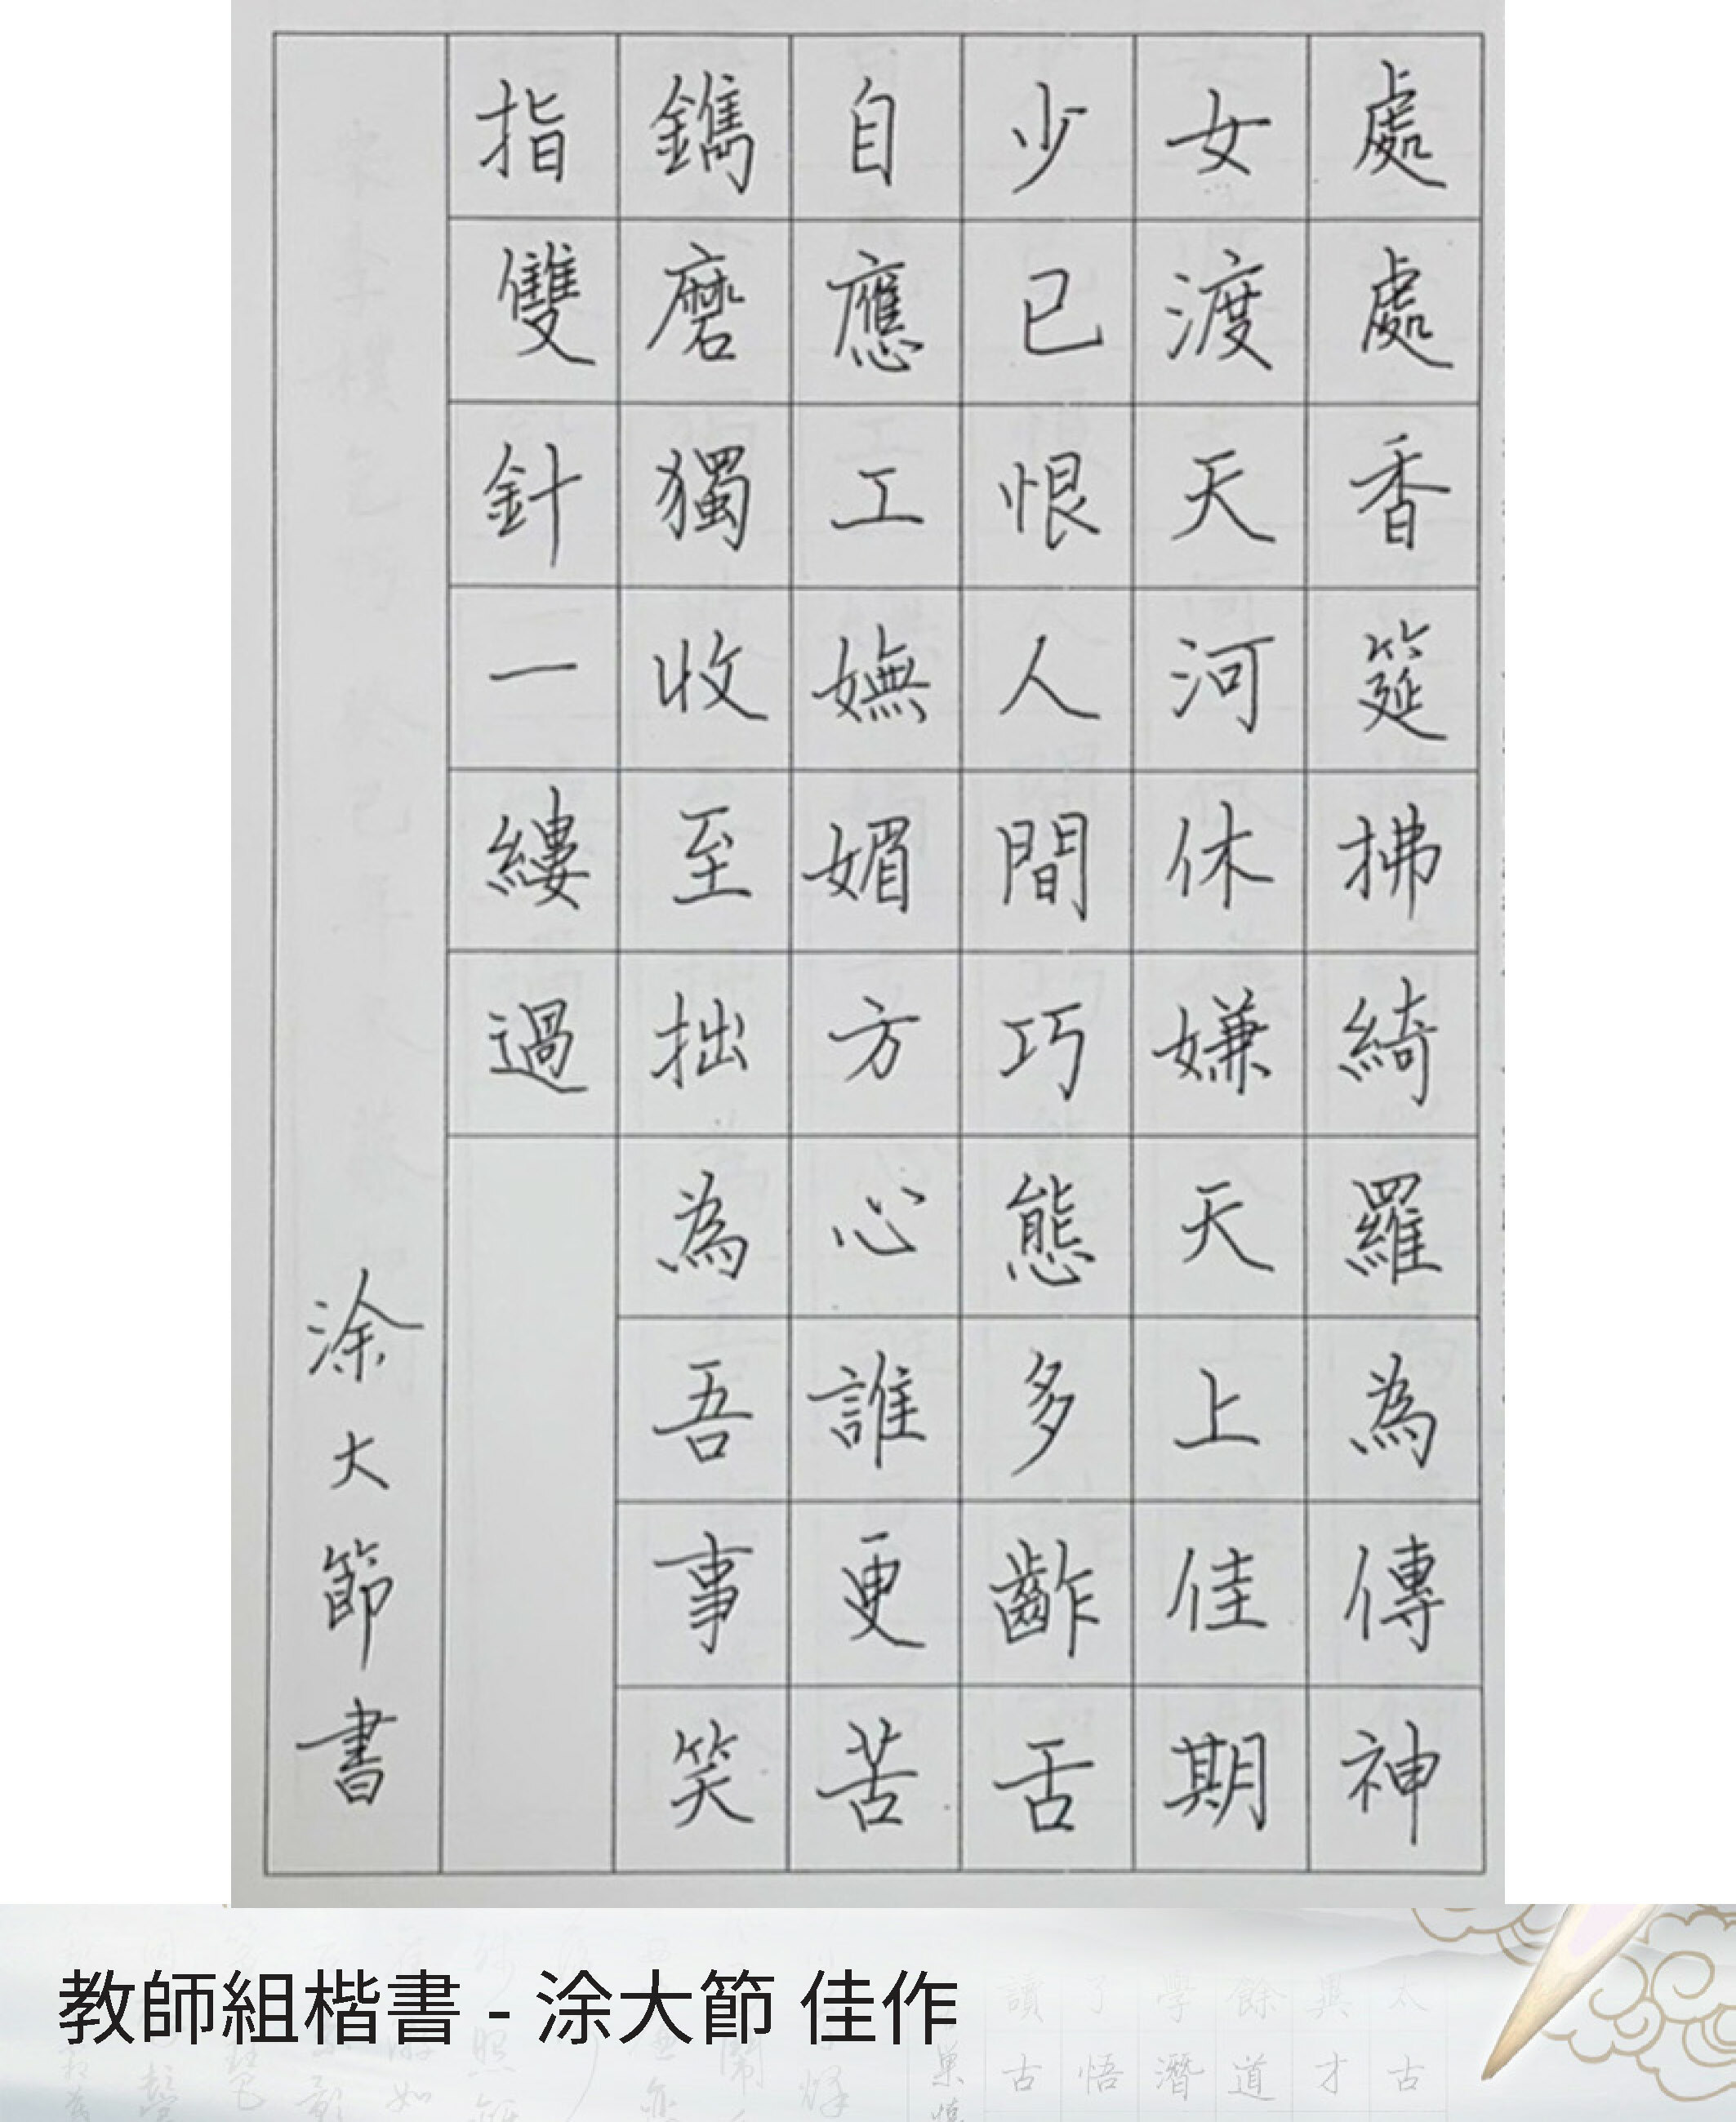 處處香筵拂綺羅為傳神
女渡天河休嫌天上佳期
少已恨人間巧態多齚舌
自應工嫵媚方心誰更苦
鐫磨獨收至拙為吾事笑
指雙針一縷過
涂大節書
教師組楷書 - 涂大節 佳作